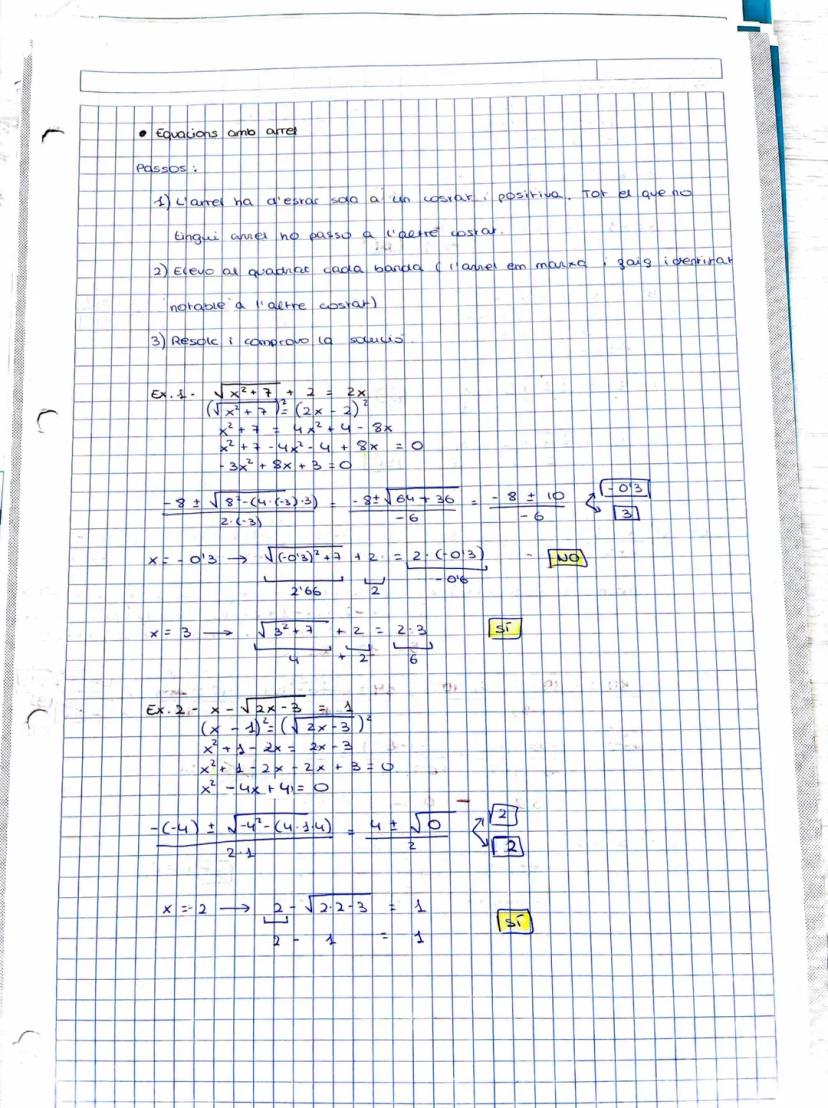 • Equacions amb arrel
Passos:
1) L'arrel ha d'estar sola a un costat i positiva. Tot el que no
tingui arrel ho passo a l'altre costat.
2) Elevo al quadrat cada banda (l'arrel em marxa i faig identitat
notable a l'altre costat)
3) Resolc i comprovo la solució
Ex. 1 - √(x² + 7) + 2 = 2x
(√(x² + 7))² = (2x - 2)²
x² + 7 = 4x² + 4 - 8x
x² + 7 - 4x² - 4 + 8x = 0
-3x² + 8x + 3 = 0
(-8 ± √(8² - (4·(-3)·3))) / (2·(-3)) = (-8 ± √(64 + 36)) / (-6) = (-8 ± 10) / (-6) -0'3 3
x = -0'3 → √((-0'3)² + 7) + 2 = 2·(-0'3) NO
2'66 2 -0'6
x = 3 → √(3² + 7) + 2 = 2·3 SÍ
4 + 2 6
Ex. 2 - x - √(2x - 3) = 1
(x - 1)² = (√(2x - 3))²
x² + 1 - 2x = 2x - 3
x² + 1 - 2x - 2x + 3 = 0
x² - 4x + 4 = 0
(-(-4) ± √(-4² - (4·1·4))) / (2·1) = (4 ± √0) / 2 2 2
x = 2 → 2 - √(2·2 - 3) = 1 SÍ
2 - 1 = 1